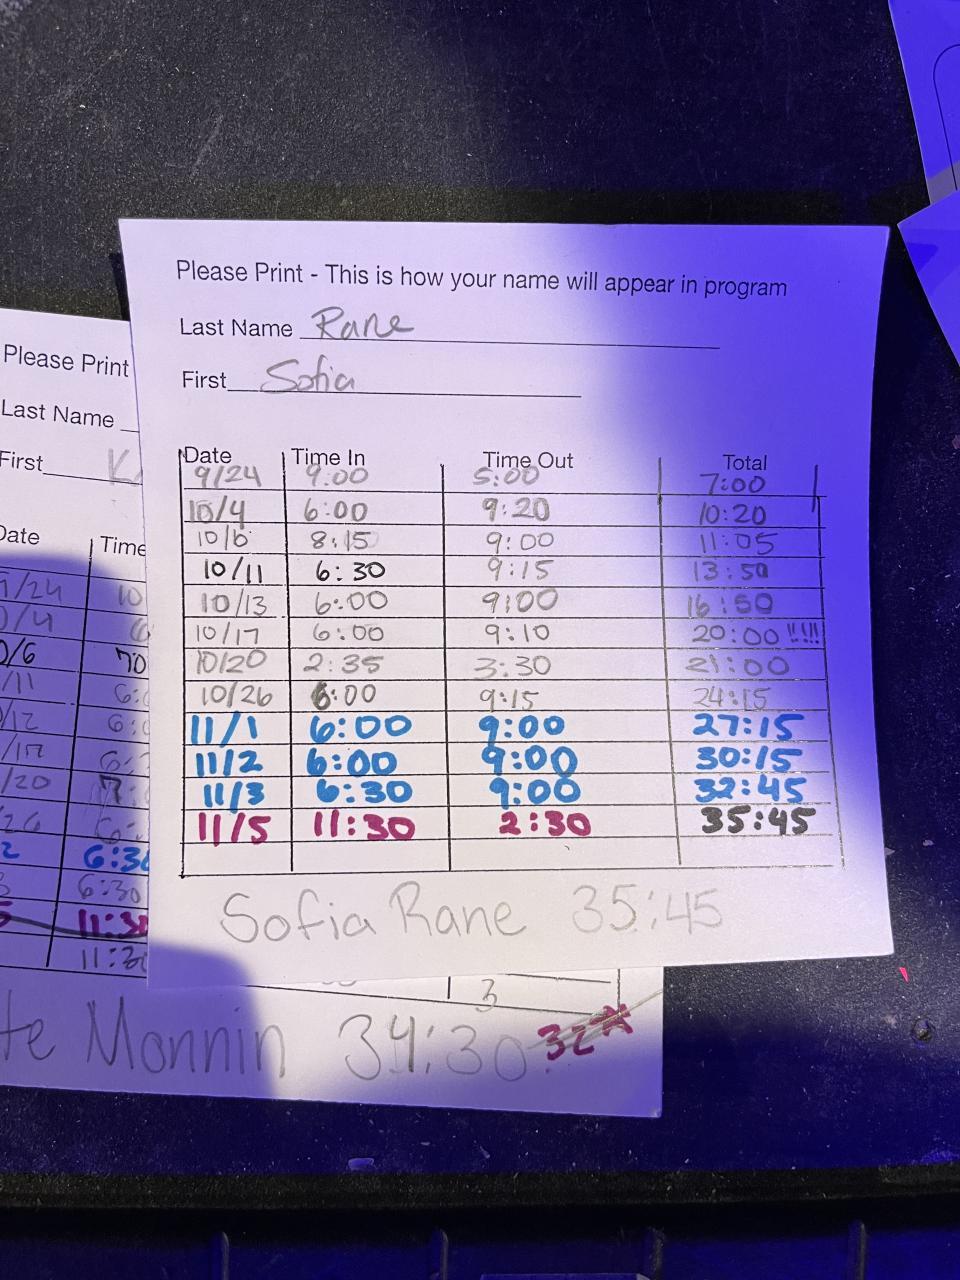 Please Print - This is how your name will appear in program
Last Name Rane
First Sofia
Date Time In Time Out Total
9/24 9:00 5:00 7:00
10/4 6:00 9:20 10:20
10/6 8:15 9:00 11:05
10/11 6:30 9:15 13:50
10/13 6:00 9:00 16:50
10/17 6:00 9:10 20:00 !!!!!
10/20 2:35 3:30 21:00
10/26 6:00 9:15 24:15
11/1 6:00 9:00 27:15
11/2 6:00 9:00 30:15
11/3 6:30 9:00 32:45
11/5 11:30 2:30 35:45
Sofia Rane 35:45
Please Print
Last Name
First
Date Time
/24 10
/4
0/6
/11 6:
/12 6:
6:
/20 7:
6:
2 6:30
6:30
11:3
11:3
3
te Monnin 34:30